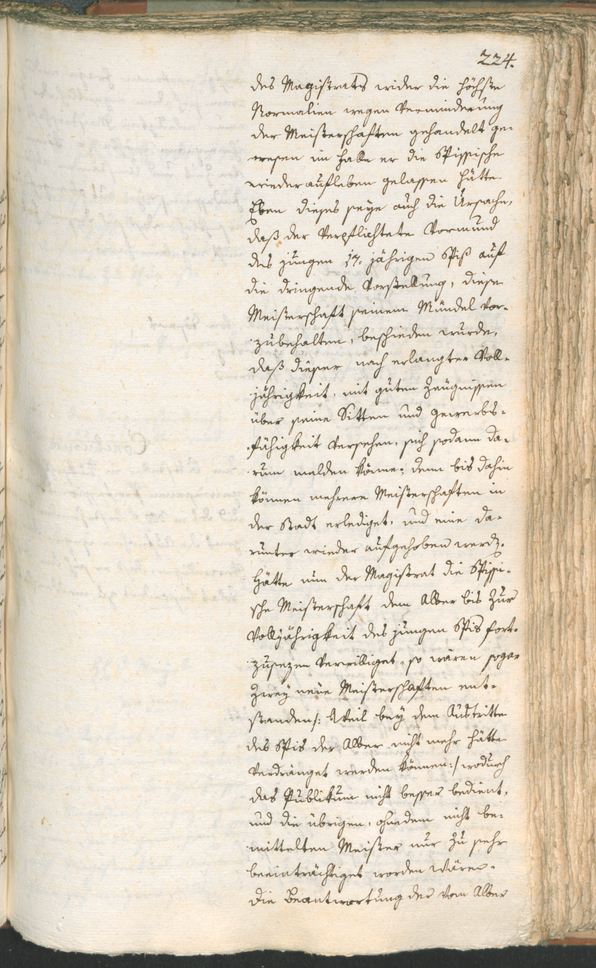 224.
des Magistrats wider die höchste
Normalien wegen Verminderung
der Meisterschaften gehandelt ge-
wesen im Falle er die Spissische
wieder aufleben gelassen hätte.
Eben dieses seye auch die Ursache,
daß der Verpflichtete Vormund
des jungen 17. jährigen Spiß auf
die dringende Vorstellung, diese
Meisterschaft seinem Mündel vor-
zubehalten, beschieden wurde,
daß dieser nach erlangter Voll-
jährigkeit, mit guten Zeugnissen
über seine Sitten und Gewerbs-
fähigkeit versehen, sich sodann da-
rum melden könne; denn bis dahin
können mehrere Meisterschaften in
der Stadt erlediget, und eine da-
runter wieder aufgehoben werd.
Hätte nun der Magistrat die Spissi-
sche Meisterschaft dem Alber bis zur
Volljährigkeit des jungen Spis fort-
zusezen verwilliget, so wären sogar
zwey neue Meisterschaften ent-
standen /: Weil bey dem Austritte
des Spis der Alber nicht mehr hätte
verdränget werden können :/ wodurch
das Publikum nicht besser bedient,
und die übrigen, ohnedem nicht be-
mittelten Meister nur zu sehr
beeinträchtiget worden wären.
Die Beantwortung der vom Alber